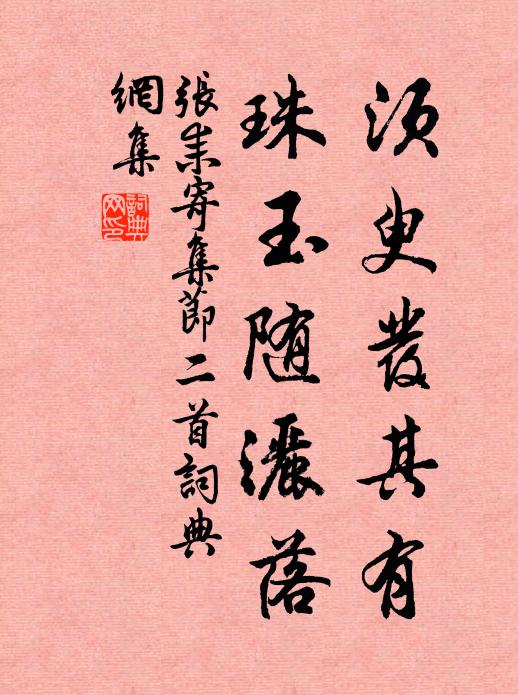 須臾發其有
珠玉隨灑落
張耒寄集節二首詞典
網集
詞典網印